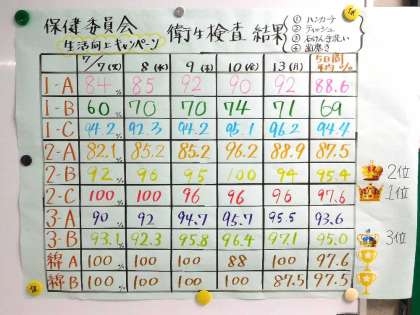 保健委員会
生活向上キャンペーン
衛生検査 結果
① ハンカチ
② ティッシュ
③ 石けん手洗い
④ 歯磨き
7/7(火) 8(水) 9(木) 10(金) 13(月) 5日間平均 %
1-A 84% 85 92 90 92 88.6
1-B 60% 70 70 74 71 69
1-C 94.2% 92.3 94.2 95.1 96.2 94.4
2-A 82.1% 85.2 85.2 96.2 88.9 87.5
2-B 92% 96 95 100 94 95.4
2位
2-C 100% 100 96 96 96 97.6
1位
3-A 90% 92 94.7 95.7 95.5 93.6
3-B 93.1% 92.3 95.8 96.4 97.1 95.0
3位
A 100% 100 100 88 100 97.6
B 100% 100 100 100 87.5 97.5